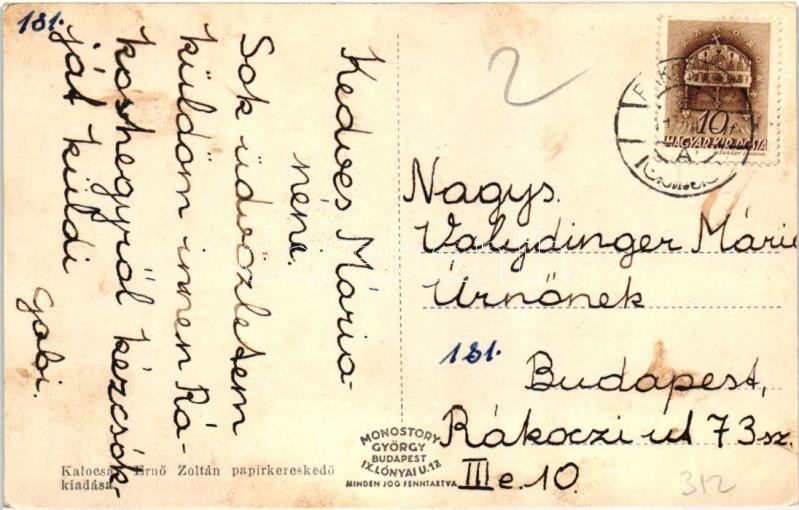 181.
Kedves Mária-
néni.
Sok üdvözletem
küldöm innen Rá-
koshegyről kézcsók-
ját küldi
Gabi.
Kalocsai Ernő Zoltán papirkereskedő
kiadása
MONOSTORY
GYÖRGY
BUDAPEST
IX. LÓNYAI U. 17
MINDEN JOG FENNTARTVA
2
10 f
MAGYAR KIR. POSTA
A
Nagys.
Valydinger Mária
Úrnőnek
181.
Budapest,
Rákoczi ut 73 sz.
III e. 10.
312